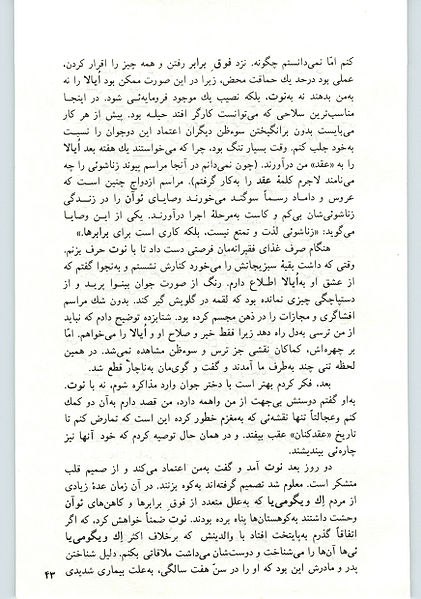 کنم امّا نمی‌دانستم چگونه. نزد فوق ِ برابر رفتن و همه چیز را اقرار کردن،
عملی بود درحد یك حماقت محض، زیرا در این صورت ممکن بود اُیالا را نه
به‌من بدهند نه به‌نوت، بلکه نصیب یك موجود فرومایه‌ئی شود. در اینجا
مناسب‌ترین سلاحی که می‌توانست کارگر افتد حیله بود. پیش از هر کار
می‌بایست بدون برانگیختن سوءظن دیگران اعتماد این دوجوان را نسبت
به‌خود جلب کنم. وقت بسیار تنگ بود، چرا که می‌خواستند یك هفته بعد اُیالا
را به «عقد» من درآورند. (چون نمی‌دانم در آنجا مراسم پیوند زناشوئی را چه
می‌نامند لاجرم کلمهٔ عقد را به‌کار گرفتم). مراسم ازدواج چنین است که
عروس و داماد رسماً سوگند می‌خورند وصایای نوآن را در زندگی
زناشوئی‌شان بی‌کم و کاست به‌مرحلهٔ اجرا درآورند. یکی از این وصایا
می‌گوید: «زناشوئی لذت و تمتع نیست، بلکه کاری است برای برابرها.»
هنگام صرف غذای فقیرانه‌مان فرصتی دست داد تا با نوت حرف بزنم.
وقتی که داشت بقیهٔ سبزیجاتش را می‌خورد کنارش نشستم و به‌نجوا گفتم که
از عشق او به‌اُیالا اطلاع دارم. رنگ از صورت جوان بینوا پرید و از
دستپاچگی چیزی نمانده بود که لقمه در گلویش گیر کند. بدون شك مراسم
افشاگری و مجازات را در ذهن مجسم کرده بود. شتابزده توضیح دادم که نباید
از من ترسی به‌دل راه دهد زیرا فقط خیر و صلاح او و اُیالا را می‌خواهم. امّا
بر چهره‌اش، کماکان نقشی جز ترس و سوءظن مشاهده نمی‌شد. در همین
لحظه تنی چند به‌طرف ما آمدند و گفت و گوی‌مان به‌ناچار قطع شد.
بعد، فکر کردم بهتر است با دختر جوان وارد مذاکره شوم، نه با نوت.
به‌او گفتم دوستش بی‌جهت از من واهمه دارد، من قصد دارم به‌آن دو کمك
کنم و عجالتاً تنها نقشه‌ئی که به‌مغزم خطور کرده این است که تمارض کنم تا
تاریخ «عقدکنان» عقب بیفتد. و در همان حال توصیه کردم که خود آنها نیز
چاره‌ئی بیندیشند.
دو روز بعد نوت آمد و گفت به‌من اعتماد می‌کند و از صمیم قلب
متشکر است. معلوم شد تصمیم گرفته‌اند به‌کوه بزنند. در آن زمان عدهٔ زیادی
از مردم اِك ویگومی‌یا که به‌علل متعدد از فوق ِ برابرها و کاهن‌های نوآن
وحشت داشتند به‌کوهستان‌ها پناه برده بودند. نوت ضمناً خواهش کرد، که اگر
اتفاقاً گذرم به‌پایتخت افتاد با والدینش که برخلاف اکثر اِك ویگومی‌یا
ئی‌ها آن‌ها را می‌شناخت و دوست‌شان می‌داشت ملاقاتی بکنم. دلیل شناختن
پدر و مادرش این بود که او را در سنّ هفت سالگی، به‌علت بیماری شدیدی
۴۳